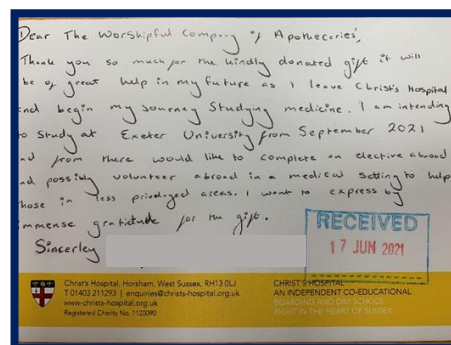 Dear The Worshipful Company of Apothecaries,
Thank you so much for the kindly donated gift it will
be of great help in my future as I leave Christ's Hospital
and begin my journey studying medicine. I am intending
to study at Exeter University from September 2021
and from there would like to complete an elective abroad
and possibly volunteer abroad in a medical setting to help
those in less privileged areas. I want to express by
immense gratitude for the gift.
Sincerley
RECEIVED
17 JUN 2021
Christ's Hospital, Horsham, West Sussex, RH13 0LJ
T 01403 211293 | enquiries@christs-hospital.org.uk
www.christs-hospital.org.uk
Registered Charity No. 1120090
CHRIST'S HOSPITAL
AN INDEPENDENT CO-EDUCATIONAL
BOARDING AND DAY SCHOOL
RIGHT IN THE HEART OF SUSSEX